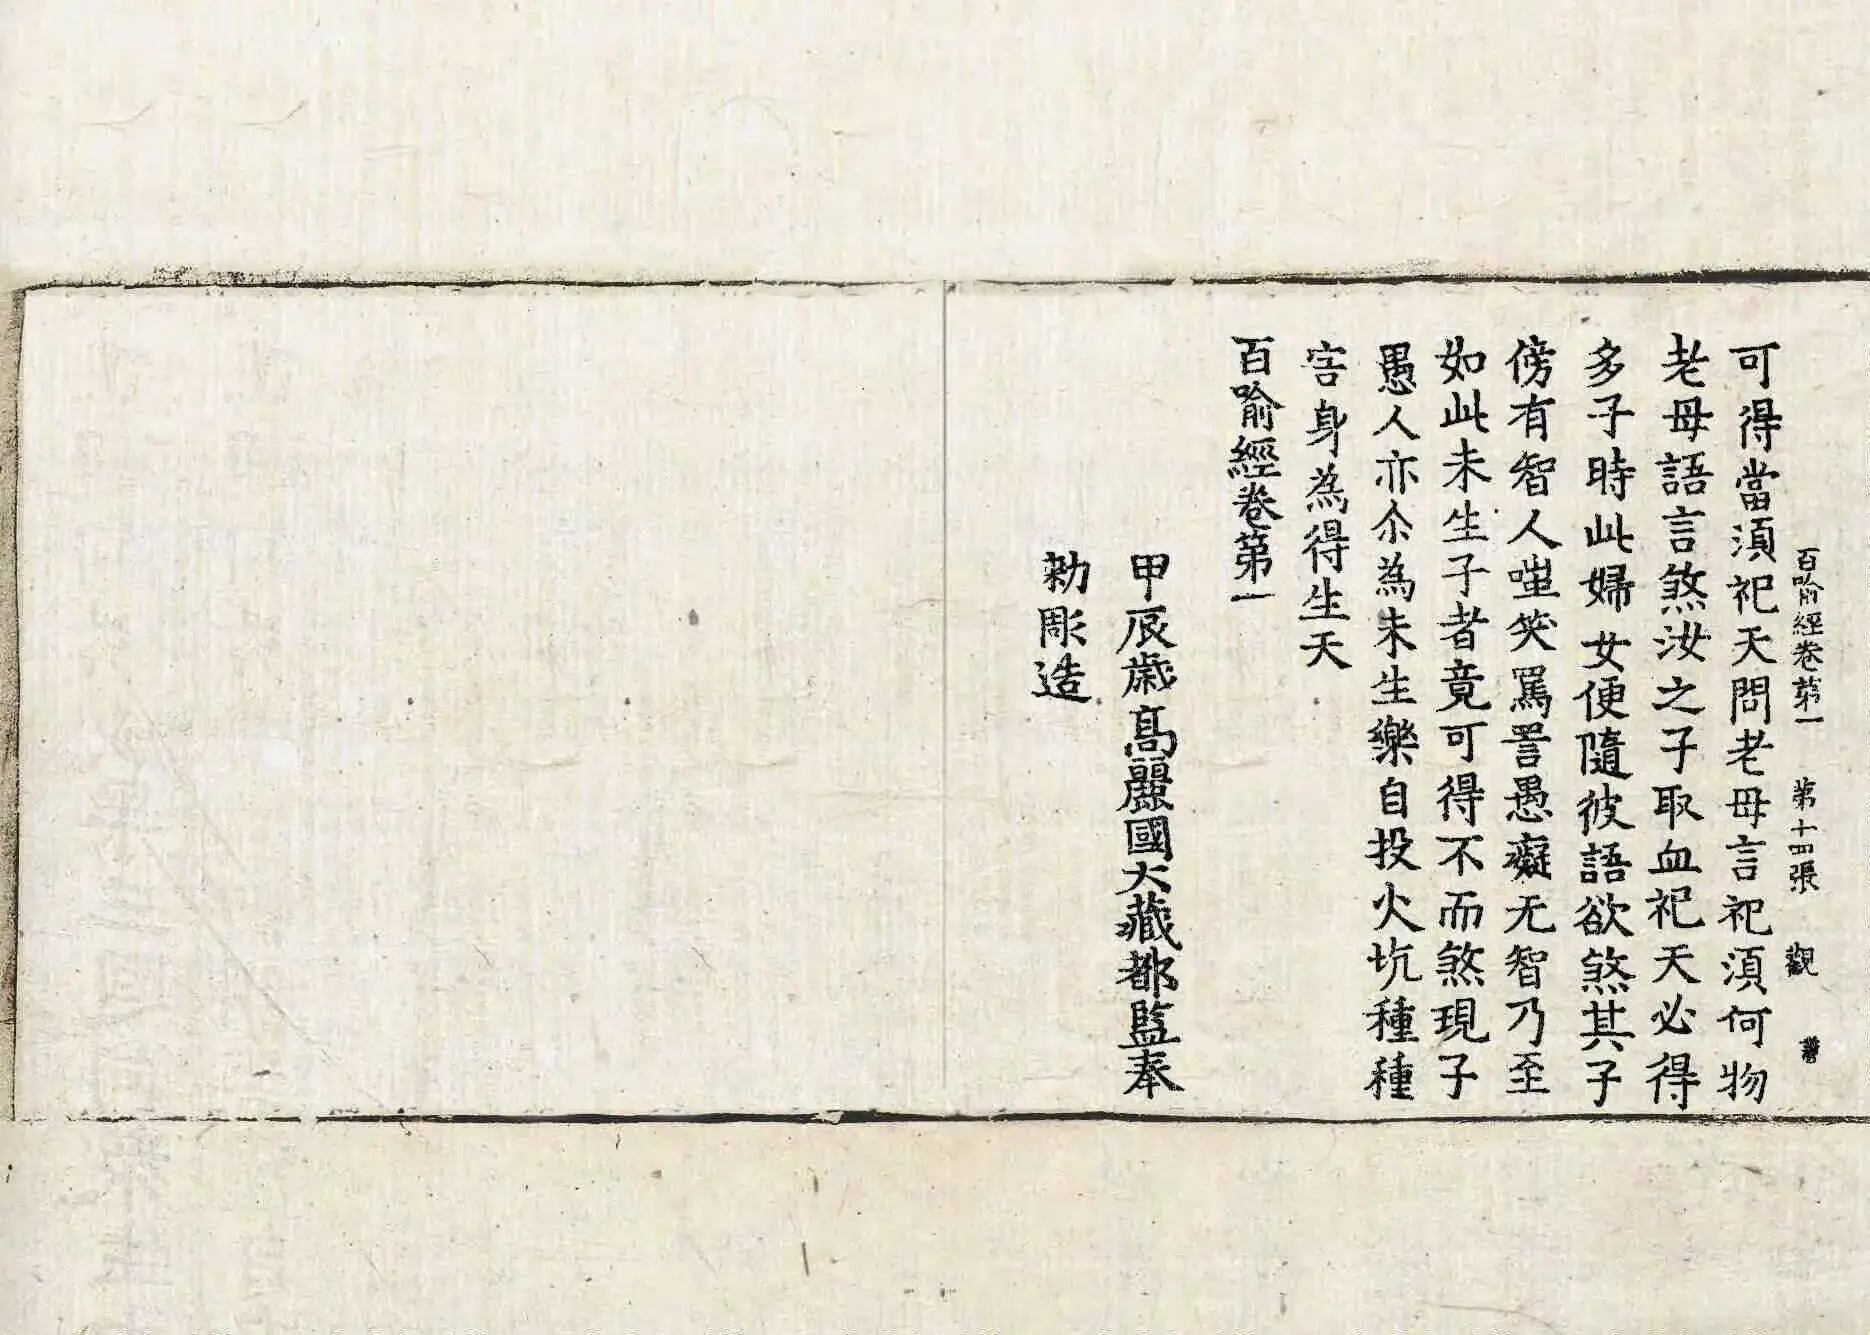 百喻經卷第一　第十四張　觀
可得當湏祀天問老母言祀湏何物
老母語言煞汝之子取血祀天必得
多子時此婦女便隨彼語欲煞其子
傍有智人嗤笑罵詈愚癡无智乃至
如此未生子者竟可得不而煞現子
愚人亦尒為未生樂自投火坑種種
害身為得生天
百喻經卷第一
甲辰歲髙麗國大藏都監奉
勑彫造